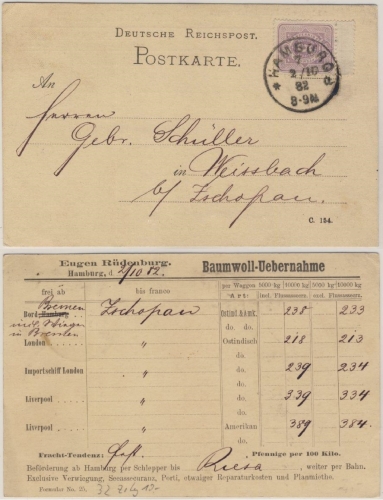 DEUTSCHE REICHSPOST.
POSTKARTE.
HAMBURG
7
2/10
82
8-9N
An
Herren
Gebr. Schüller
in Weissbach
b/ Zschopau.
C. 154.
Eugen Rüdenburg.
Hamburg, d. 2/10 82.
Baumwoll-Uebernahme
per Waggon 5000 kg 10000 kg 5000 kg 10000 kg
frei ab bis franco Art incl. Flussassec. incl. Flussassec.
Bremen
Bord Hamburg Zschopau 238 233
in Bremen
London " Ostindisch 218 213
do. do.
Importschiff London " do. 239 234
do.
Liverpool " do. 339 334
do.
Liverpool " Amerikan 389 384
Fracht-Tendenz: fest. Pfennige per 100 Kilo.
Beförderung ab Hamburg per Schlepper bis Riesa, weiter per Bahn.
Exclusive Verwiegung, Seeassecuranz, Porti, etwaiger Reparaturkosten und Planmiethe.